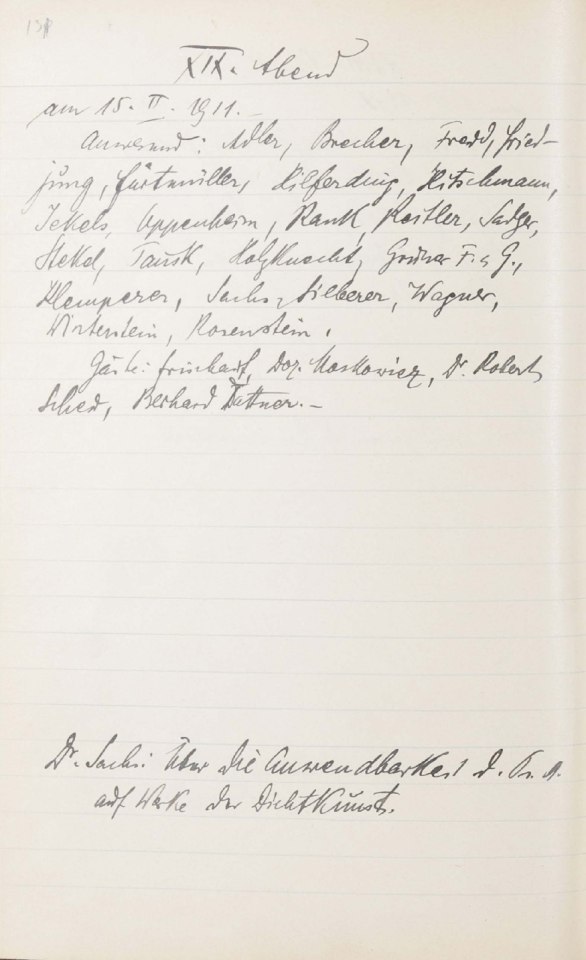 XIX. Abend
am 15. II. 1911. –
Anwesend: Adler, Brecher, Freud, Fried-
jung, Furtmüller, Hilferding, Hitschmann,
Jekels, Oppenheim, Rank, Reitler, Sadger,
Stekel, Tausk, Holzknecht, Grüner F. & G.,
Klemperer, Sachs, Silberer, Wagner,
Winterstein, Rosenstein.
Gäste: Frischauf, Doz. Moskowicz, Dr. Robert
Scheu, Berhard Dattner. –
Dr. Sachs: Über die Anwendbarkeit d. Ps. A.
auf Werke der Dichtkunst.